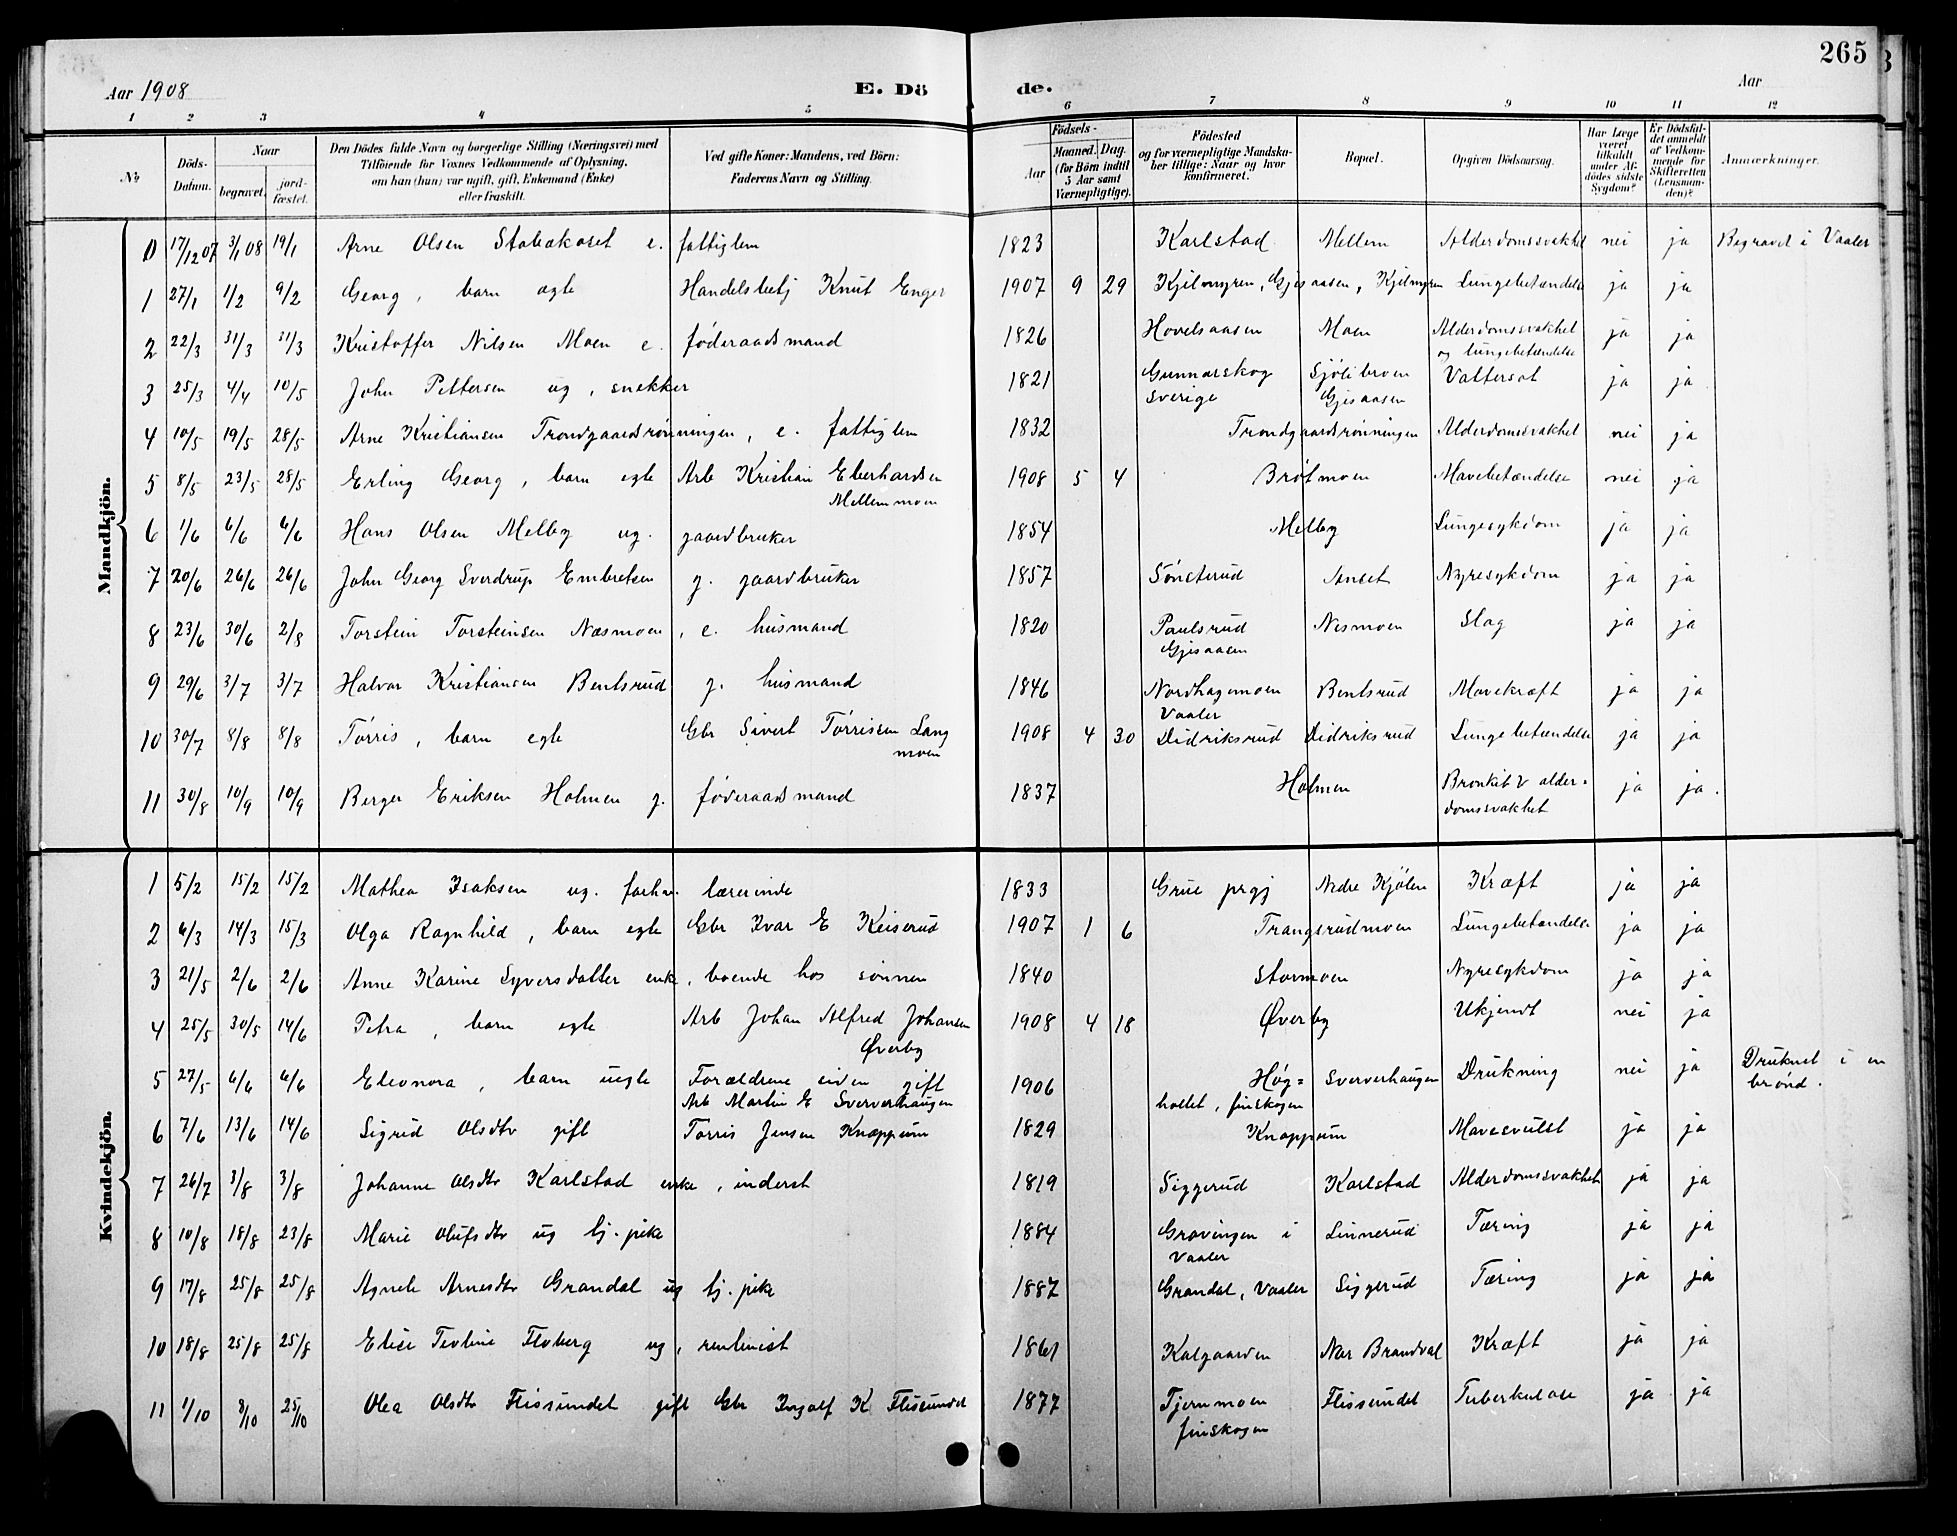 265
Aar 1908 E. Dö de. Aar
1 2 3 4 5 6 7 8 9 10 11 12
No Döds-Datum. Naar begravet. jordfæstet. Den Dödes fulde Navn og borgerlige Stilling (Næringsvei) med Tilföiende for Voxnes Vedkommende af Oplysning, om han (hun) var ugift, gift, Enkemand (Enke) eller fraskilt. Ved gifte Koner: Mandens, ved Börn: Faderens Navn og Stilling. Födsels- Aar Maaned. Dag. (for Börn indtil 5 Aar samt Værnepligtige). Födested og for værnepligtige Mandskaber tillige: Naar og hvor konfirmeret. Bopæl. Opgiven Dödsaarsag. Har Læge været tilkaldt under Afdödes sidste Sygdom? Er Dödsfaldet anmeldt af Vedkommende for Skifteretten (Lensmanden)? Anmærkninger.
Mandkjön.
0 17/12 07 3/1 08 19/1 Arne Olsen Stabækaset e. fattiglem 1823 Karlstad Mellem Alderdomssvakhet nei ja Begravet i Vaaler
1 27/1 1/2 9/2 Georg, barn egte Handelsbetj Knut Enger 1907 9 29 Kjilmyren, Gjesaasen, Kjilmyren Lungebetændelse ja ja
2 22/3 31/3 31/3 Kristoffer Nilsen Moen e. føderaadsmand 1826 Hovelsaasen Moen Alderdomssvakhet ja ja
og lungebetændelse
3 25/3 4/4 10/5 John Pettersen ug, snekker 1821 Gunnarskog Sjølibroen Vattersot ja ja
Sverige Gjesaasen
4 10/5 19/5 28/5 Arne Kristiansen Trondgaardsrønningen, e. fattiglem 1832 Trondgaardsrønningen Alderdomssvakhet nei ja
5 8/5 23/5 28/5 Erling Georg, barn egte Arb Kristian Eberhardsen 1908 5 4 Brøtmoen Mavebetændelse nei ja
Mellemmoen
6 1/6 6/6 6/6 Hans Olsen Melby ug. gaardbruker 1854 Melby Lungesykdom ja ja
7 20/6 26/6 26/6 John Georg Sverdrup Embretsen g. gaardbruker 1857 Sønsterud Anset Nyresykdom ja ja
8 23/6 30/6 2/8 Torstein Torsteinsen Næsmoen, e. husmand 1820 Paulsrud Nesmoen Slag ja ja
Gjesaasen
9 29/6 3/7 3/7 Halvor Kristiansen Bentsrud g. husmand 1846 Nordhagemoen Bentsrud Mavekræft ja ja
Vaaler
10 30/7 8/8 8/8 Tørris, barn egte Gbr Sivert Tørrissen Lang 1908 4 30 Didriksrud Didriksrud Lungebetændelse ja ja
moen
11 30/8 10/9 10/9 Berger Eriksen Holmen g. føderaadsmand 1837 Holmen Bronkit & alder= ja ja.
domssvakhet
Kvindekjön.
1 5/2 15/2 15/2 Mathea Isaksen ug. forhv. lærerinde 1833 Grue prgj Nedre Kjølen Kræft ja ja
2 6/3 14/3 15/3 Olga Ragnhild, barn egte Gbr Ivar E Keiserud 1907 1 6 Trangsrudmoen Lungebetændelse ja ja
3 21/5 2/6 2/6 Anne Karine Syversdatter enke, boende hos sønnen 1840 Stormoen Nyresykdom ja ja
4 25/5 30/5 14/6 Petra, barn egte Arb Johan Alfred Johansen 1908 4 18 Øverby Ukjendt nei ja
Øverby
5 27/5 6/6 6/6 Eleonora, barn uegte Forældrene siden gift 1906 Høg= Sververhaugen Drukning nei ja Druknet i en
Arb Martin E Sververhaugen holtet, finskogen brønd.
6 7/6 13/6 14/6 Sigrid Olsdtr gift Tørris Jensen Knappum 1829 Knappum Mavesvulst ja ja
7 26/7 3/8 3/8 Johanne Olsdtr Karlstad enke, inderst 1819 Siggerud Karlstad Alderdomssvakhet ja ja
8 10/8 18/8 23/8 Marie Olufsdtr ug tj.pike 1884 Gravingen i Linnerud Tæring ja ja
Vaaler
9 17/8 25/8 25/8 Agnete Arnesdtr Grandal ug tj.pike 1887 Grandal, Vaaler Siggerud Tæring ja ja
10 18/8 25/8 25/8 Elise Tevline Floberg ug, rentenist 1861 Kalgaarden Nor Brandval Kræft ja ja
11 1/10 8/10 25/10 Olea Olsdtr Flissundet gift Gbr Ingolf K Flissundet 1877 Tjernmoen Flissundet Tuberkulose ja ja
finskogen